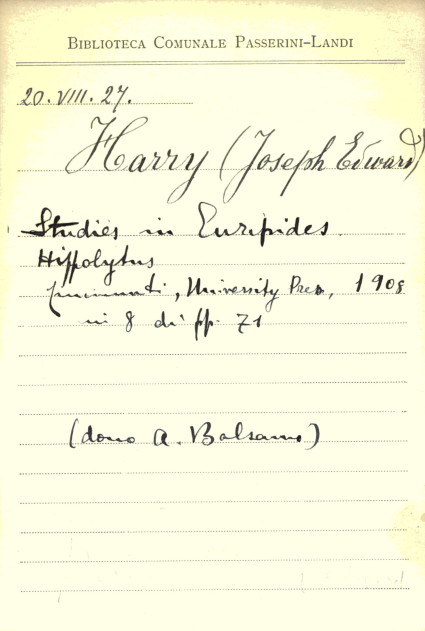 BIBLIOTECA COMUNALE PASSERINI-LANDI
20. VIII. 27.
Harry (Joseph Edward)
Studies in Euripides.
Hippolytus
Cincinnati, University Press, 1908
in 8 di pp. 71
(dono A. Balsamo)